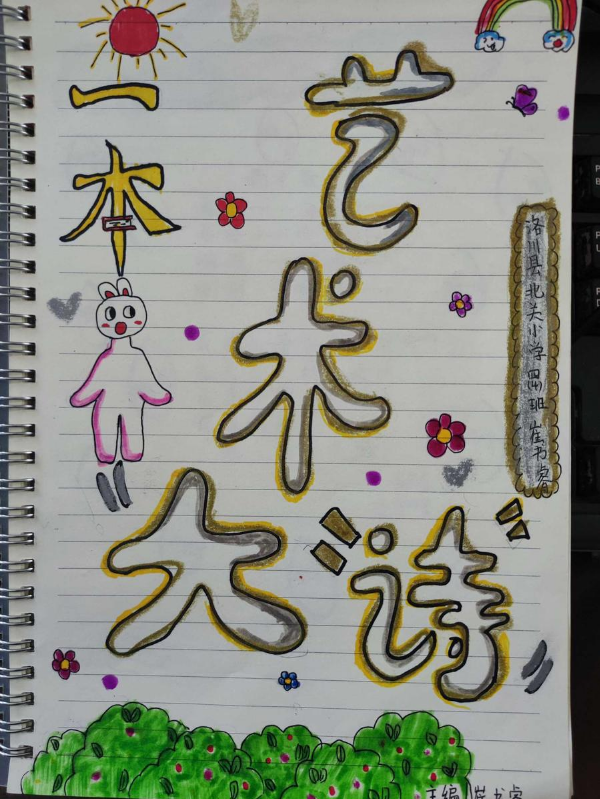 一本
艺术
大诗
洛川县北关小学四班崔书睿
主编 崔书睿